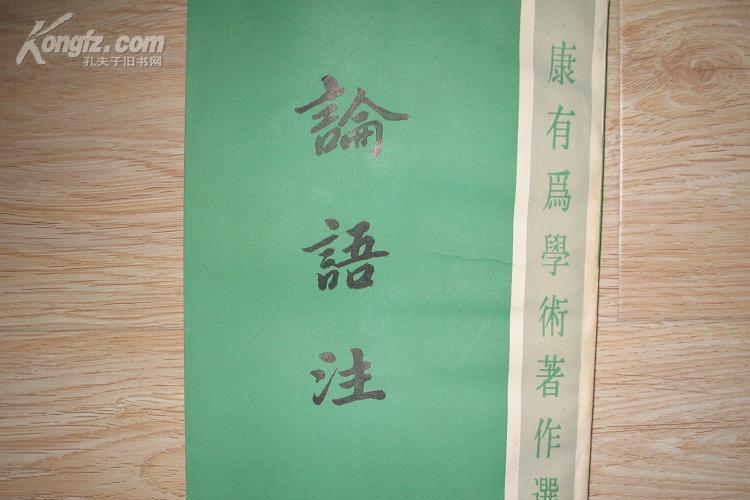 Kongfz.com
孔夫子旧书网
康有爲學術著作選
論語注